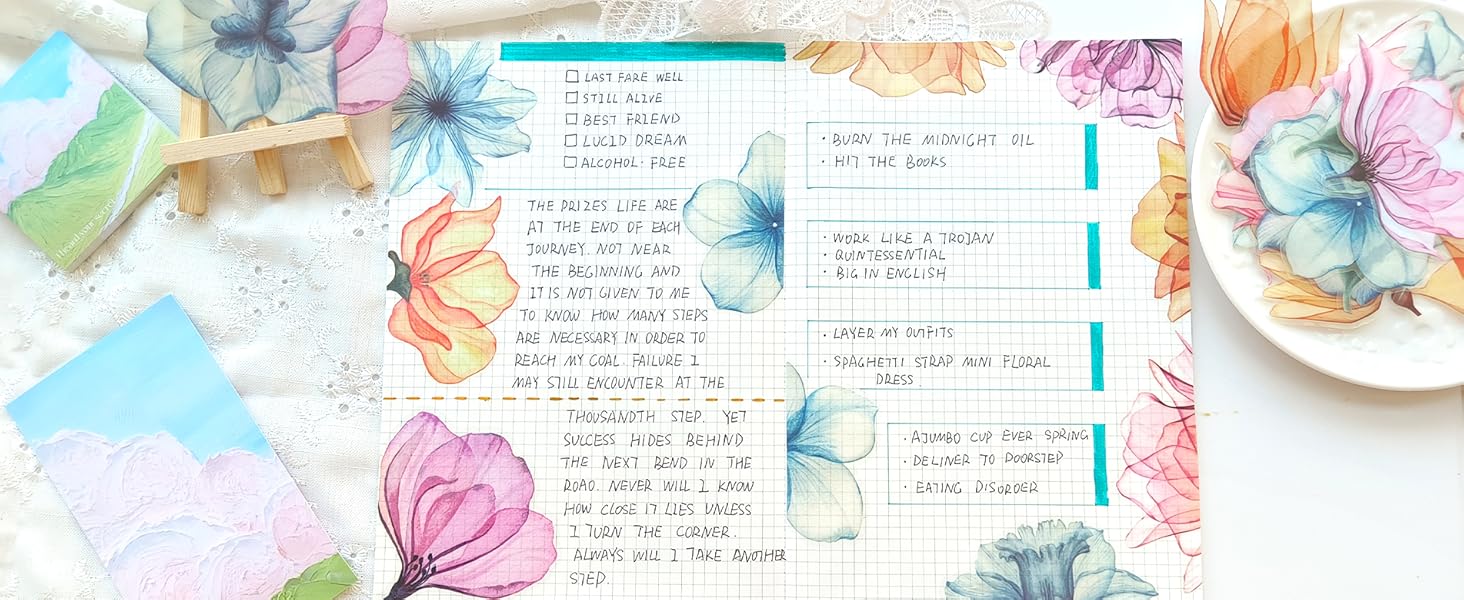 LAST FARE WELL
STILL ALIVE
BEST FRIEND
LUCID DREAM
ALCOHOL·FREE
THE PRIZES LIFE ARE
AT THE END OF EACH
JOURNEY, NOT NEAR
THE BEGINNING AND
IT IS NOT GIVEN TO ME
TO KNOW HOW MANY STEPS
ARE NECESSARY IN ORDER TO
REACH MY GOAL. FAILURE I
MAY STILL ENCOUNTER AT THE
THOUSANDTH STEP. YET
SUCCESS HIDES BEHIND
THE NEXT BEND IN THE
ROAD. NEVER WILL I KNOW
HOW CLOSE IT LIES UNLESS
I TURN THE CORNER.
ALWAYS WILL I TAKE ANOTHER
STEP.
· BURN THE MIDNIGHT OIL
· HIT THE BOOKS
· WORK LIKE A TROJAN
· QUINTESSENTIAL
· BIG IN ENGLISH
· LAYER MY OUTFITS
· SPAGHETTI STRAP MINI FLORAL
DRESS.
· A JUMBO CUP EVER SPRING
· DELINER TO DOORSTEP
· EATING DISORDER